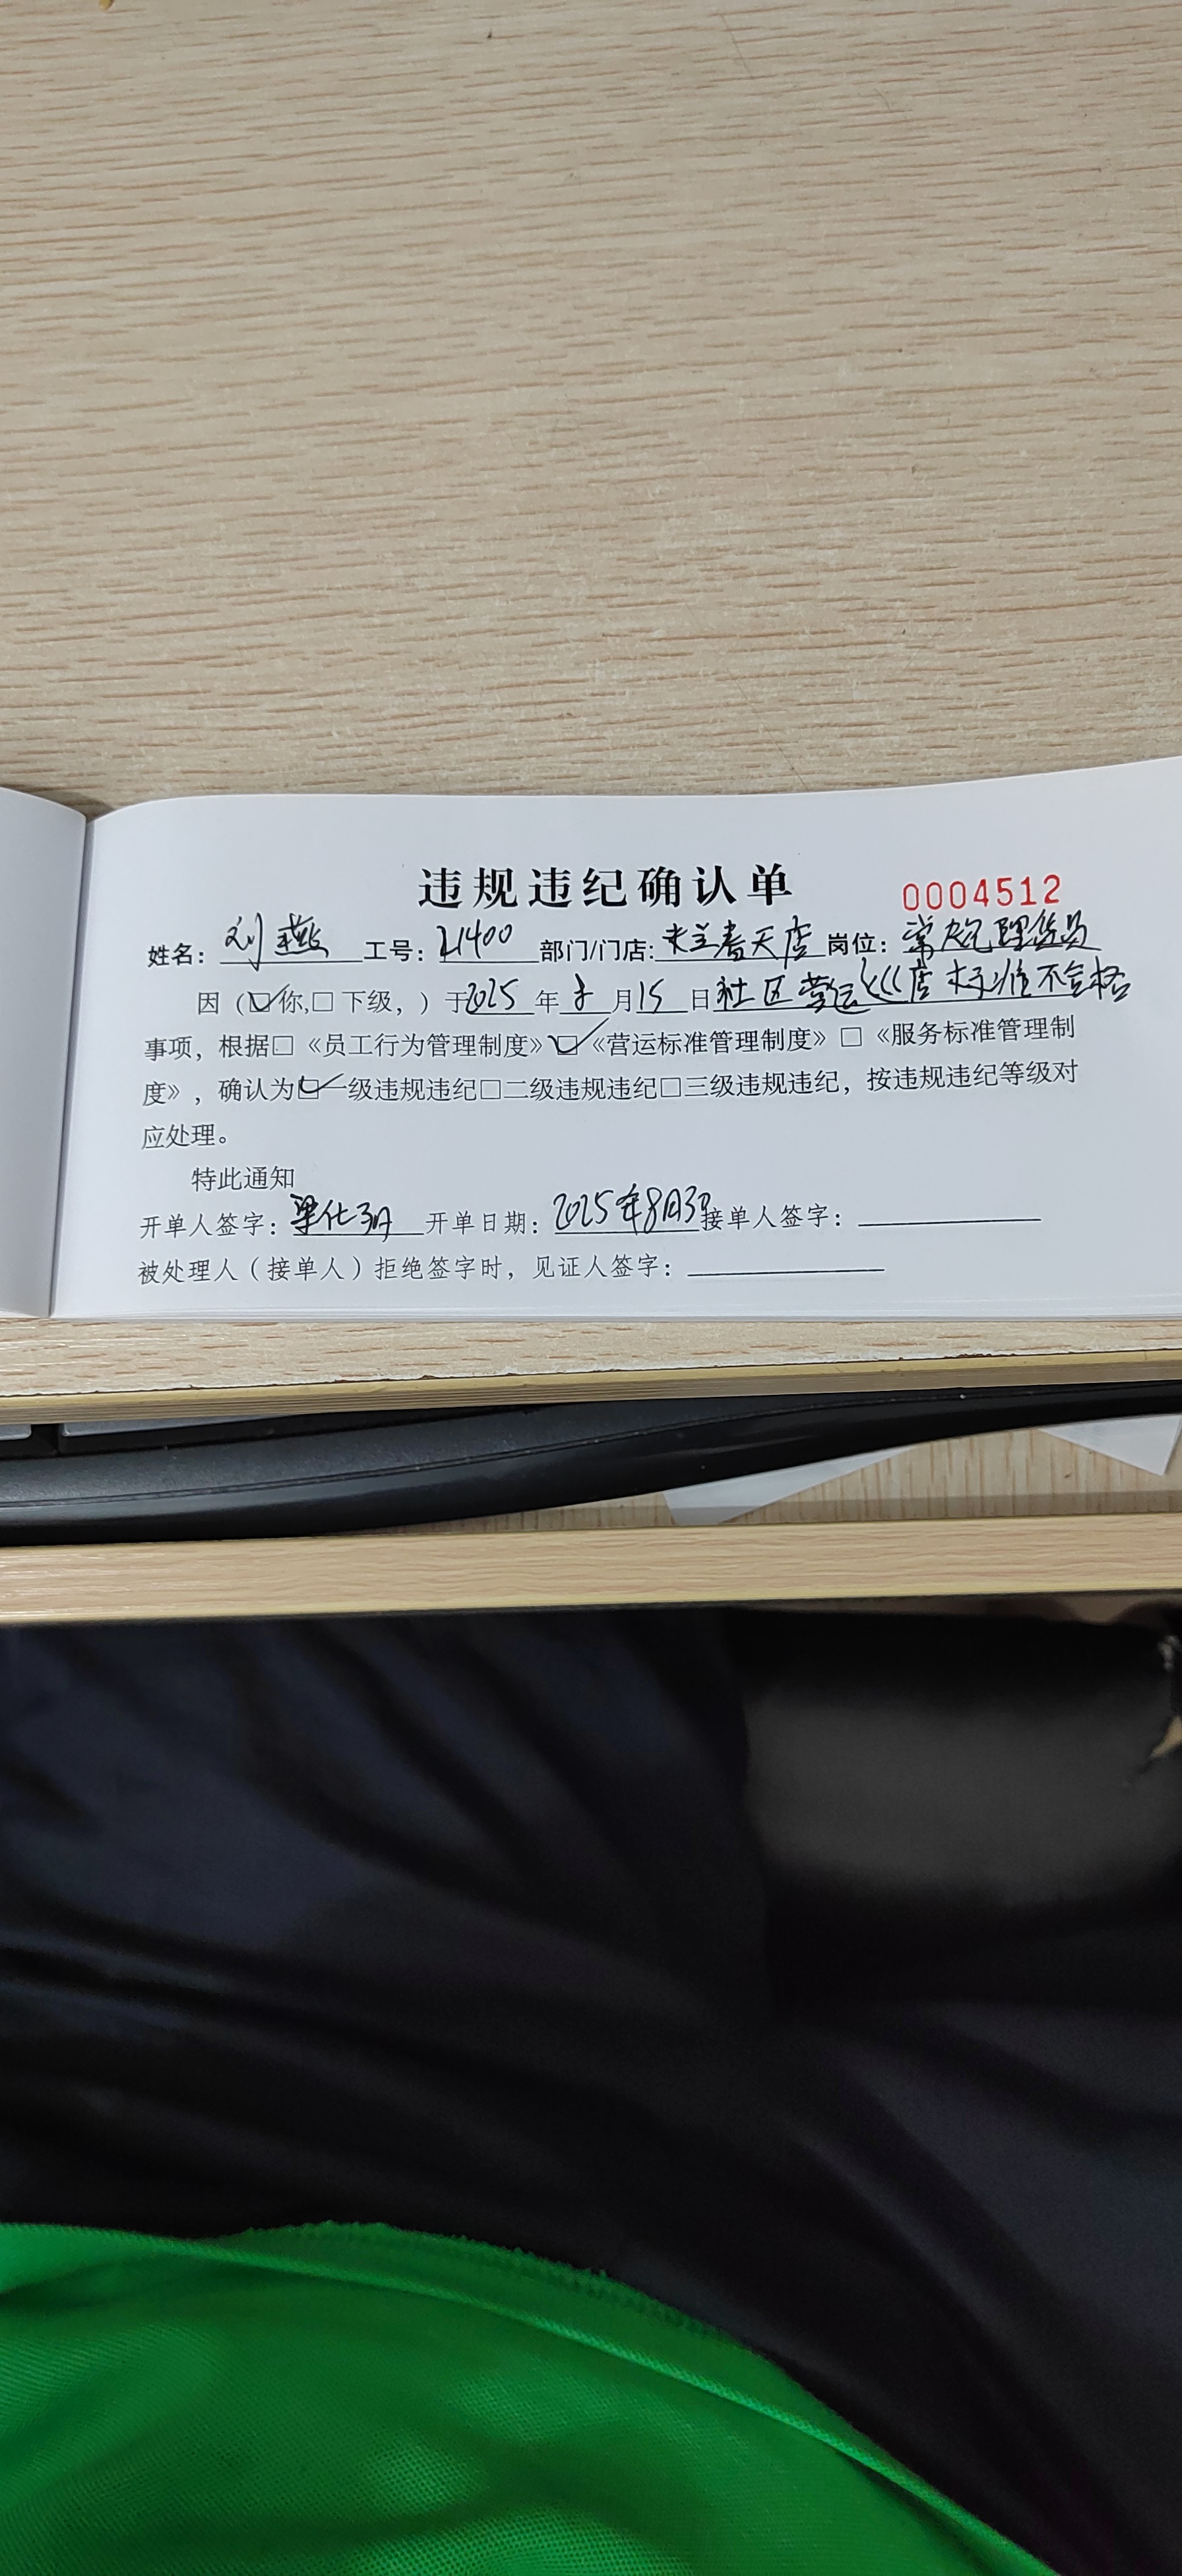 违规违纪确认单 0004512
姓名：刘燕 工号：21400 部门/门店：木兰春天店 岗位：常规理货员
因（☑你,□下级，）于2025年8月15日社区营运巡店标准不合格
事项，根据□《员工行为管理制度》☑《营运标准管理制度》□《服务标准管理制
度》，确认为☑一级违规违纪□二级违规违纪□三级违规违纪，按违规违纪等级对
应处理。
特此通知
开单人签字： 开单日期：2025年8月3 接单人签字：
被处理人（接单人）拒绝签字时，见证人签字：